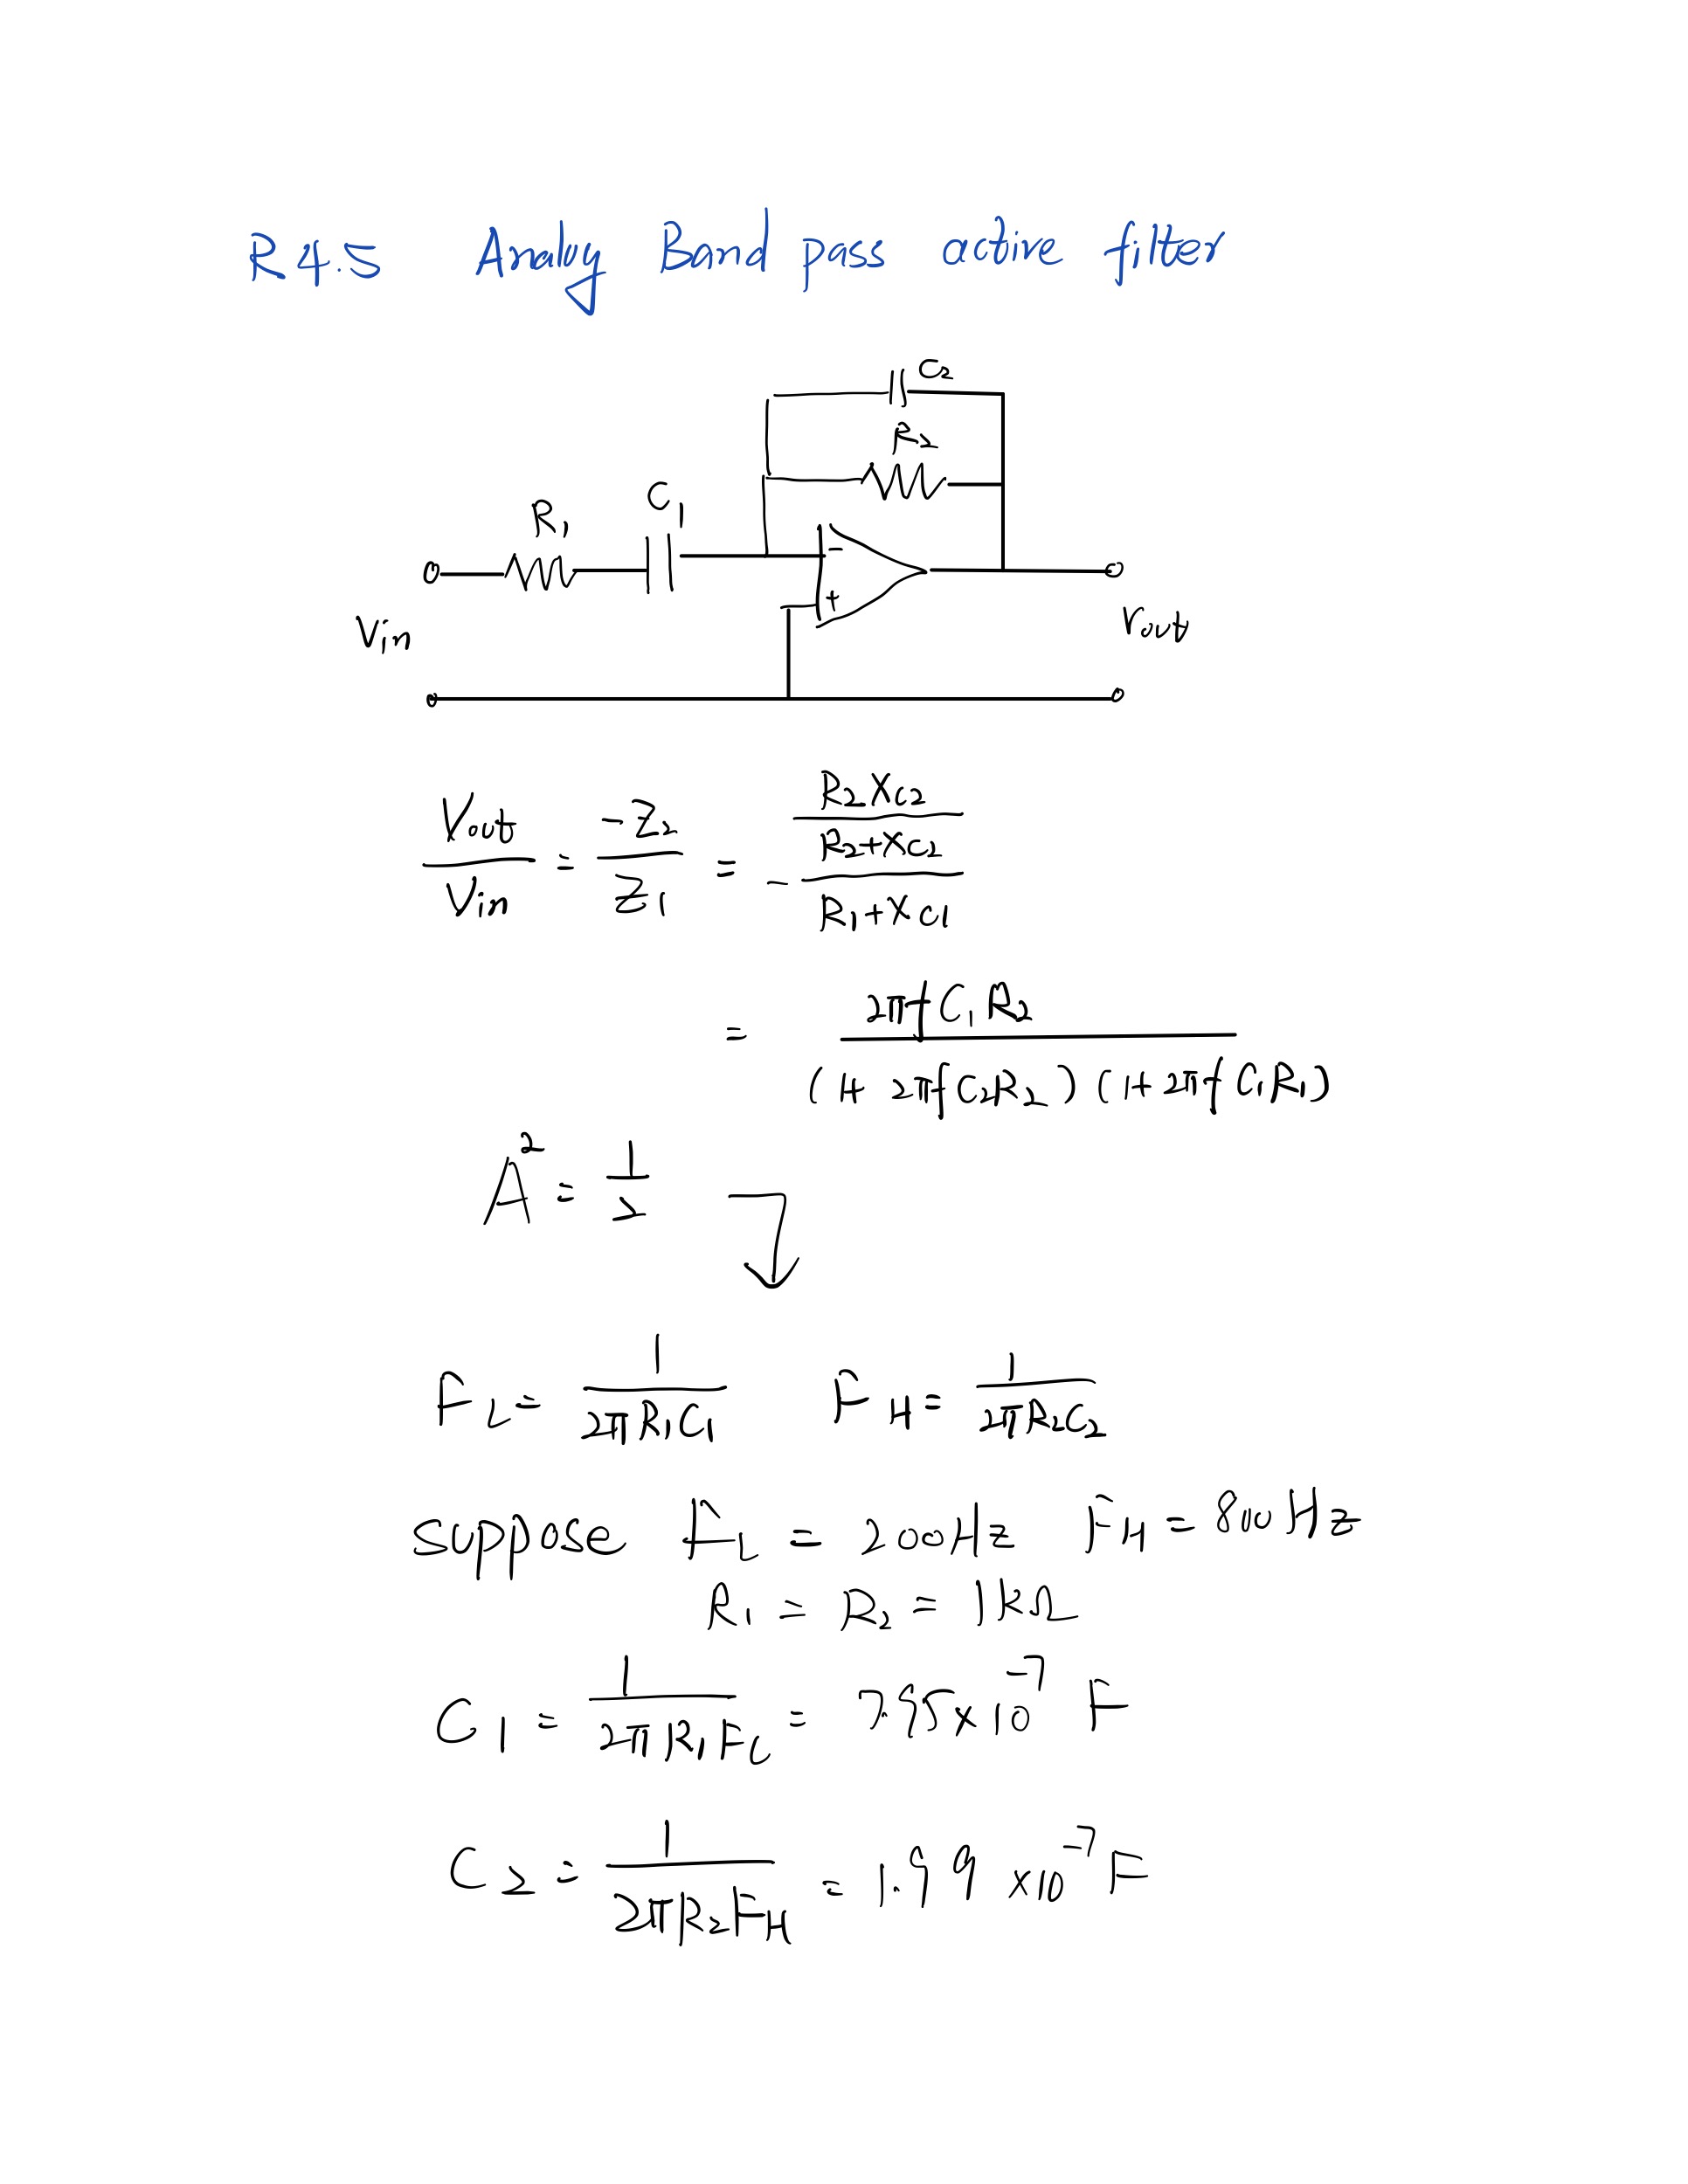 R4.5 Analog Band pass active filter
C2
R2
R1 C1
-
+
Vin Vout
Vout/Vin = -Z2/Z1 = - (R2Xc2/(R2+Xc2))/(R1+Xc1)
= 2πfC1R2/((1+2πfC2R2)(1+2πfC1R1))
A² = 1/2
FL = 1/(2πR1C1) FH = 1/(2πR2C2)
suppose FL = 200Hz FH = 800Hz
R1 = R2 = 1kΩ
C1 = 1/(2πR1FL) = 7.95x10⁻⁷ F
C2 = 1/(2πR2FH) = 1.99 x10⁻⁷ F